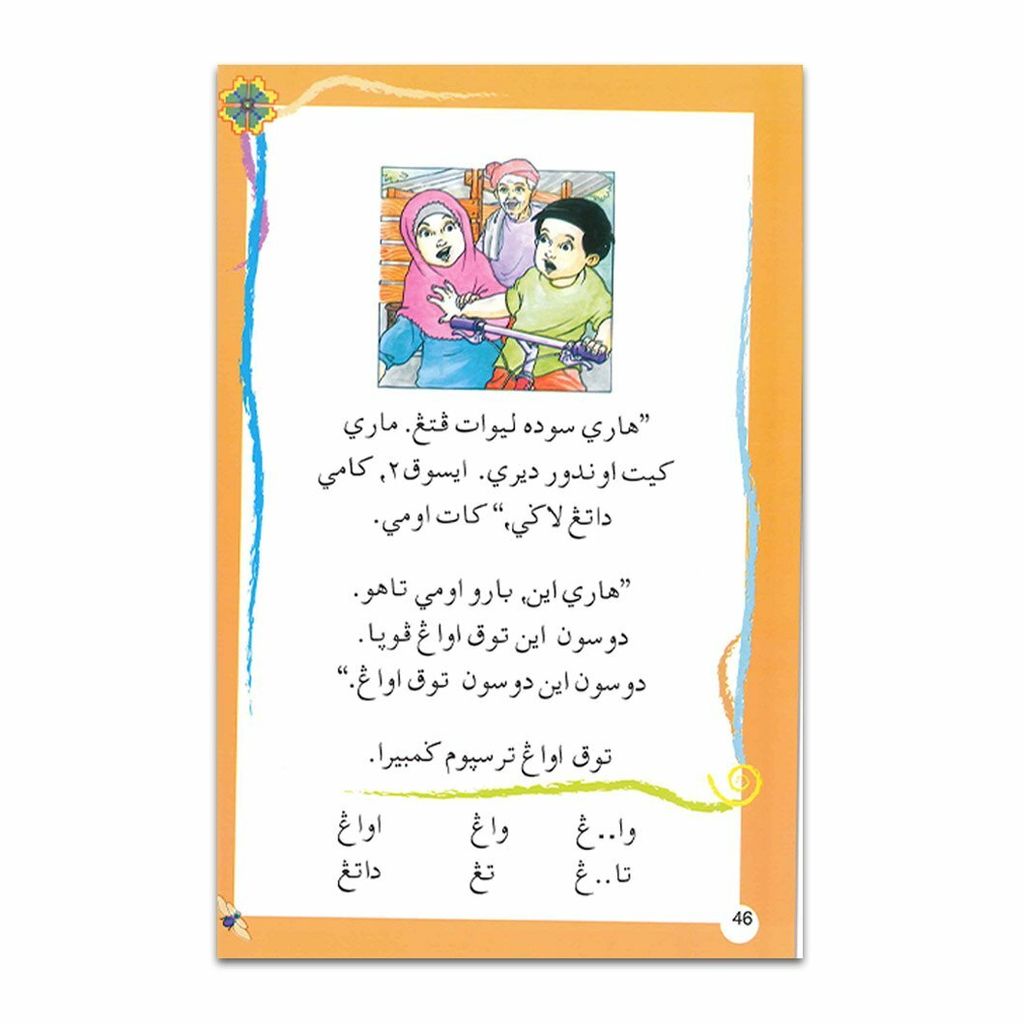 ”هاري سوده ليوات ڤتڠ. ماري
كيت اوندور ديري. ايسوق٢, كامي
داتڠ لاݢي,“ كات اومي.
”هاري اين, بارو اومي تاهو.
دوسون اين توق اواڠ ڤوڽا.
دوسون اين دوسون توق اواڠ.“
توق اواڠ ترسڽوم ݢمبيرا.
وا..ڠ واڠ اواڠ
تا..ڠ تڠ داتڠ
46